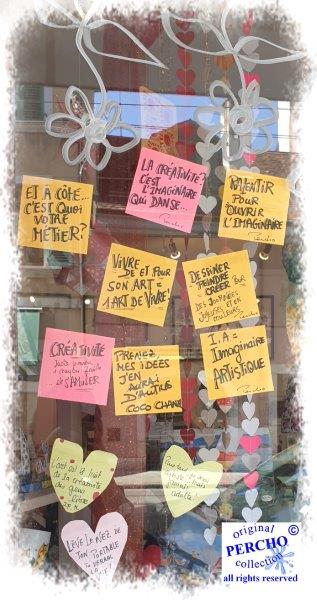 LA CRÉATIVITÉ?
C'EST
L'IMAGINAIRE
QUI DANSE...
ET À CÔTÉ...
C'EST QUOI
VOTRE
MÉTIER?
RALENTIR
POUR
OUVRIR
L'IMAGINAIRE
VIVRE
DE ET POUR
SON ART =
1 ART DE VIVRE!
DESSINER
PEINDRE
CRÉER POUR
DES JOURNÉES
JOYEUSES ET EN
COULEURS
CRÉATIVITÉ
S'AMUSER
PRENEZ
MES IDÉES
J'EN
AURAI
D'AUTRES
COCO CHANEL
I.A =
Imaginaire
ARTISTIQUE
L'art est le fruit
de la créativité
des gens
libres
LÈVE LE NEZ DE
TON PORTABLE
original ©
PERCHO
collection
all rights reserved